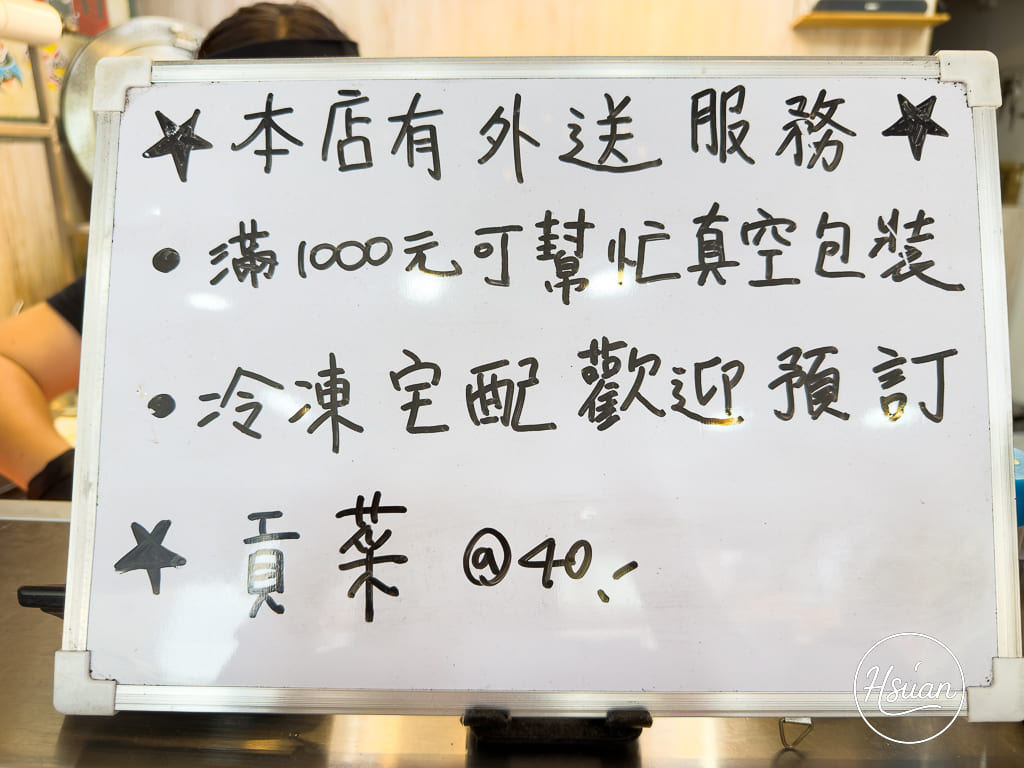 ★本店有外送服務★
•滿1000元可幫忙真空包裝
•冷凍宅配歡迎預訂
★貢菜@40.-
Hsuan